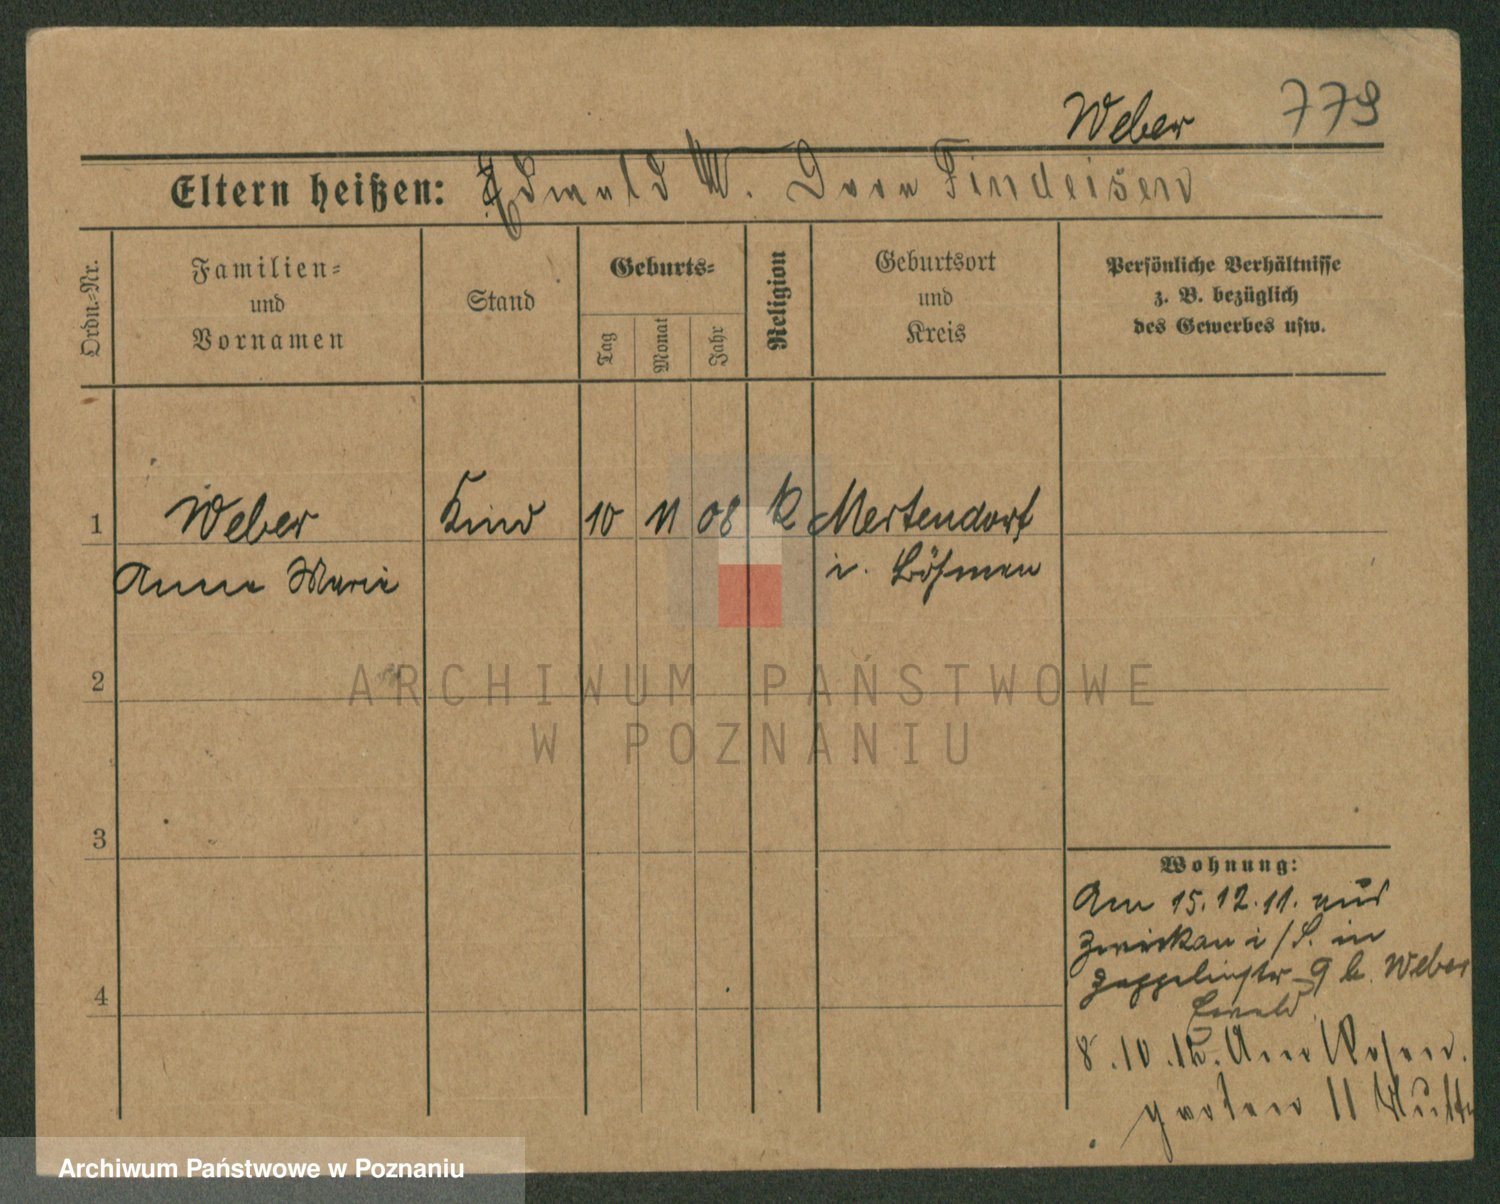 Weber 779
Eltern heißen: Ewald W. Dora Findeisen
Ordn.=Nr.
Familien=
und
Vornamen
Stand
Geburts=
Tag
Monat
Jahr
Religion
Geburtsort
und
Kreis
Persönliche Verhältnisse
z. B. bezüglich
des Gewerbes usw.
1 Weber Kind 10 11 08 k Mertendorf
Anna Marie i. Böhmen
2
3
4
Wohnung:
Am 15.12.11. aus
Zwickau i/S. in
Zeppelinstr 9 b. Weber
Ewald
8.10.12. Am Rosen-
garten 11 Mutter
ARCHIWUM PAŃSTWOWE
W POZNANIU
Archiwum Państwowe w Poznaniu